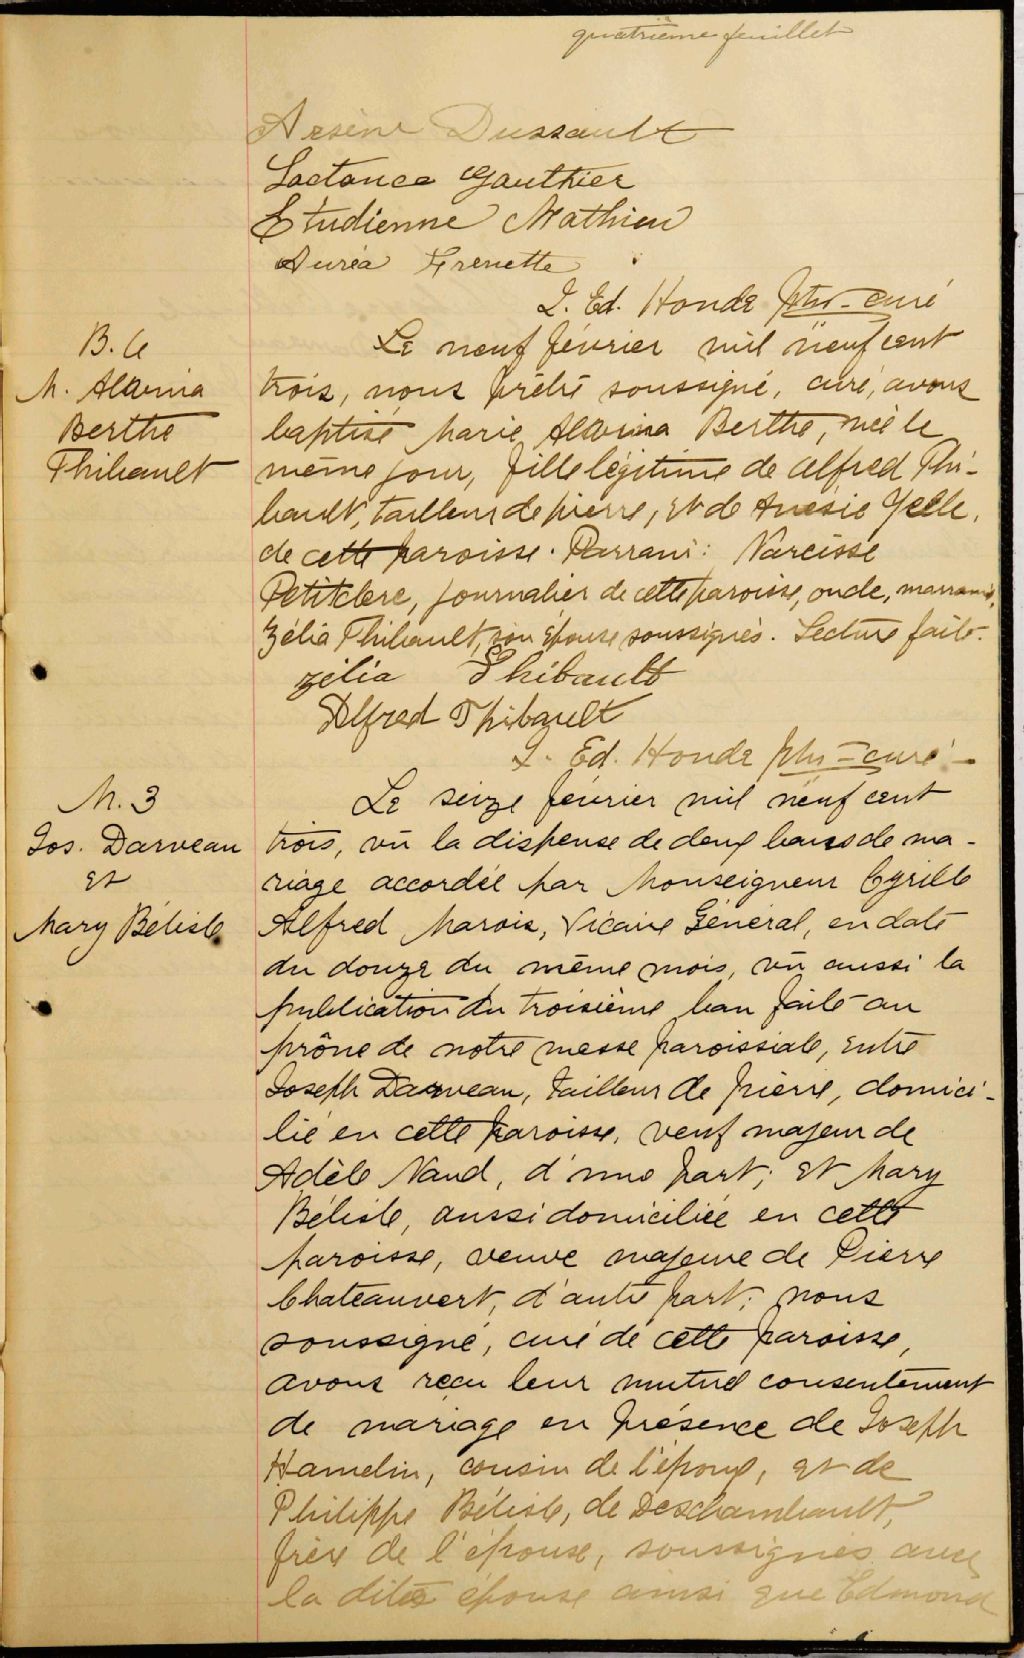 quatrième feuillet
Arsène Dussault
Lactance Gauthier
Etudienne Mathieu
Auréa Frenette
J. Ed. Honde ptre-curé
B. 6
M. Alvina
Berthe
Thibault
Le neuf février mil neuf cent
trois, nous prêtre soussigné, curé, avons
baptisé Marie Alvina Berthe, née le
même jour, fille légitime de Alfred Thi-
bault, tailleur de pierre, et de Anésie Yelle,
de cette paroisse. Parrain: Narcisse
Petitclerc, journalier de cette paroisse, oncle, marraine,
Zélia Thibault, son épouse soussignés. Lecture faite.
zélia Thibault
Alfred Thibault
J. Ed. Honde ptre-curé
M. 3
Jos. Darveau
et
Mary Bélisle
Le seize février mil neuf cent
trois, vû la dispense de deux bans de ma-
riage accordée par Monseigneur Cyrille
Alfred Marois, Vicaire Général, en date
du douze du même mois, vû aussi la
publication du troisième ban faite au
prône de notre messe paroissiale, entre
Joseph Darveau, tailleur de pierre, domici-
lié en cette paroisse, veuf majeur de
Adèle Naud, d'une part; et Mary
Bélisle, aussi domiciliée en cette
paroisse, veuve majeure de Pierre
Chateauvert, d'autre part; nous
soussigné, curé de cette paroisse,
avons reçu leur mutuel consentement
de mariage en présence de Joseph
Hamelin, cousin de l'époux, et de
Philippe Bélisle, de Deschambault,
frère de l'épouse, soussignés avec
la dite épouse ainsi que Edmond